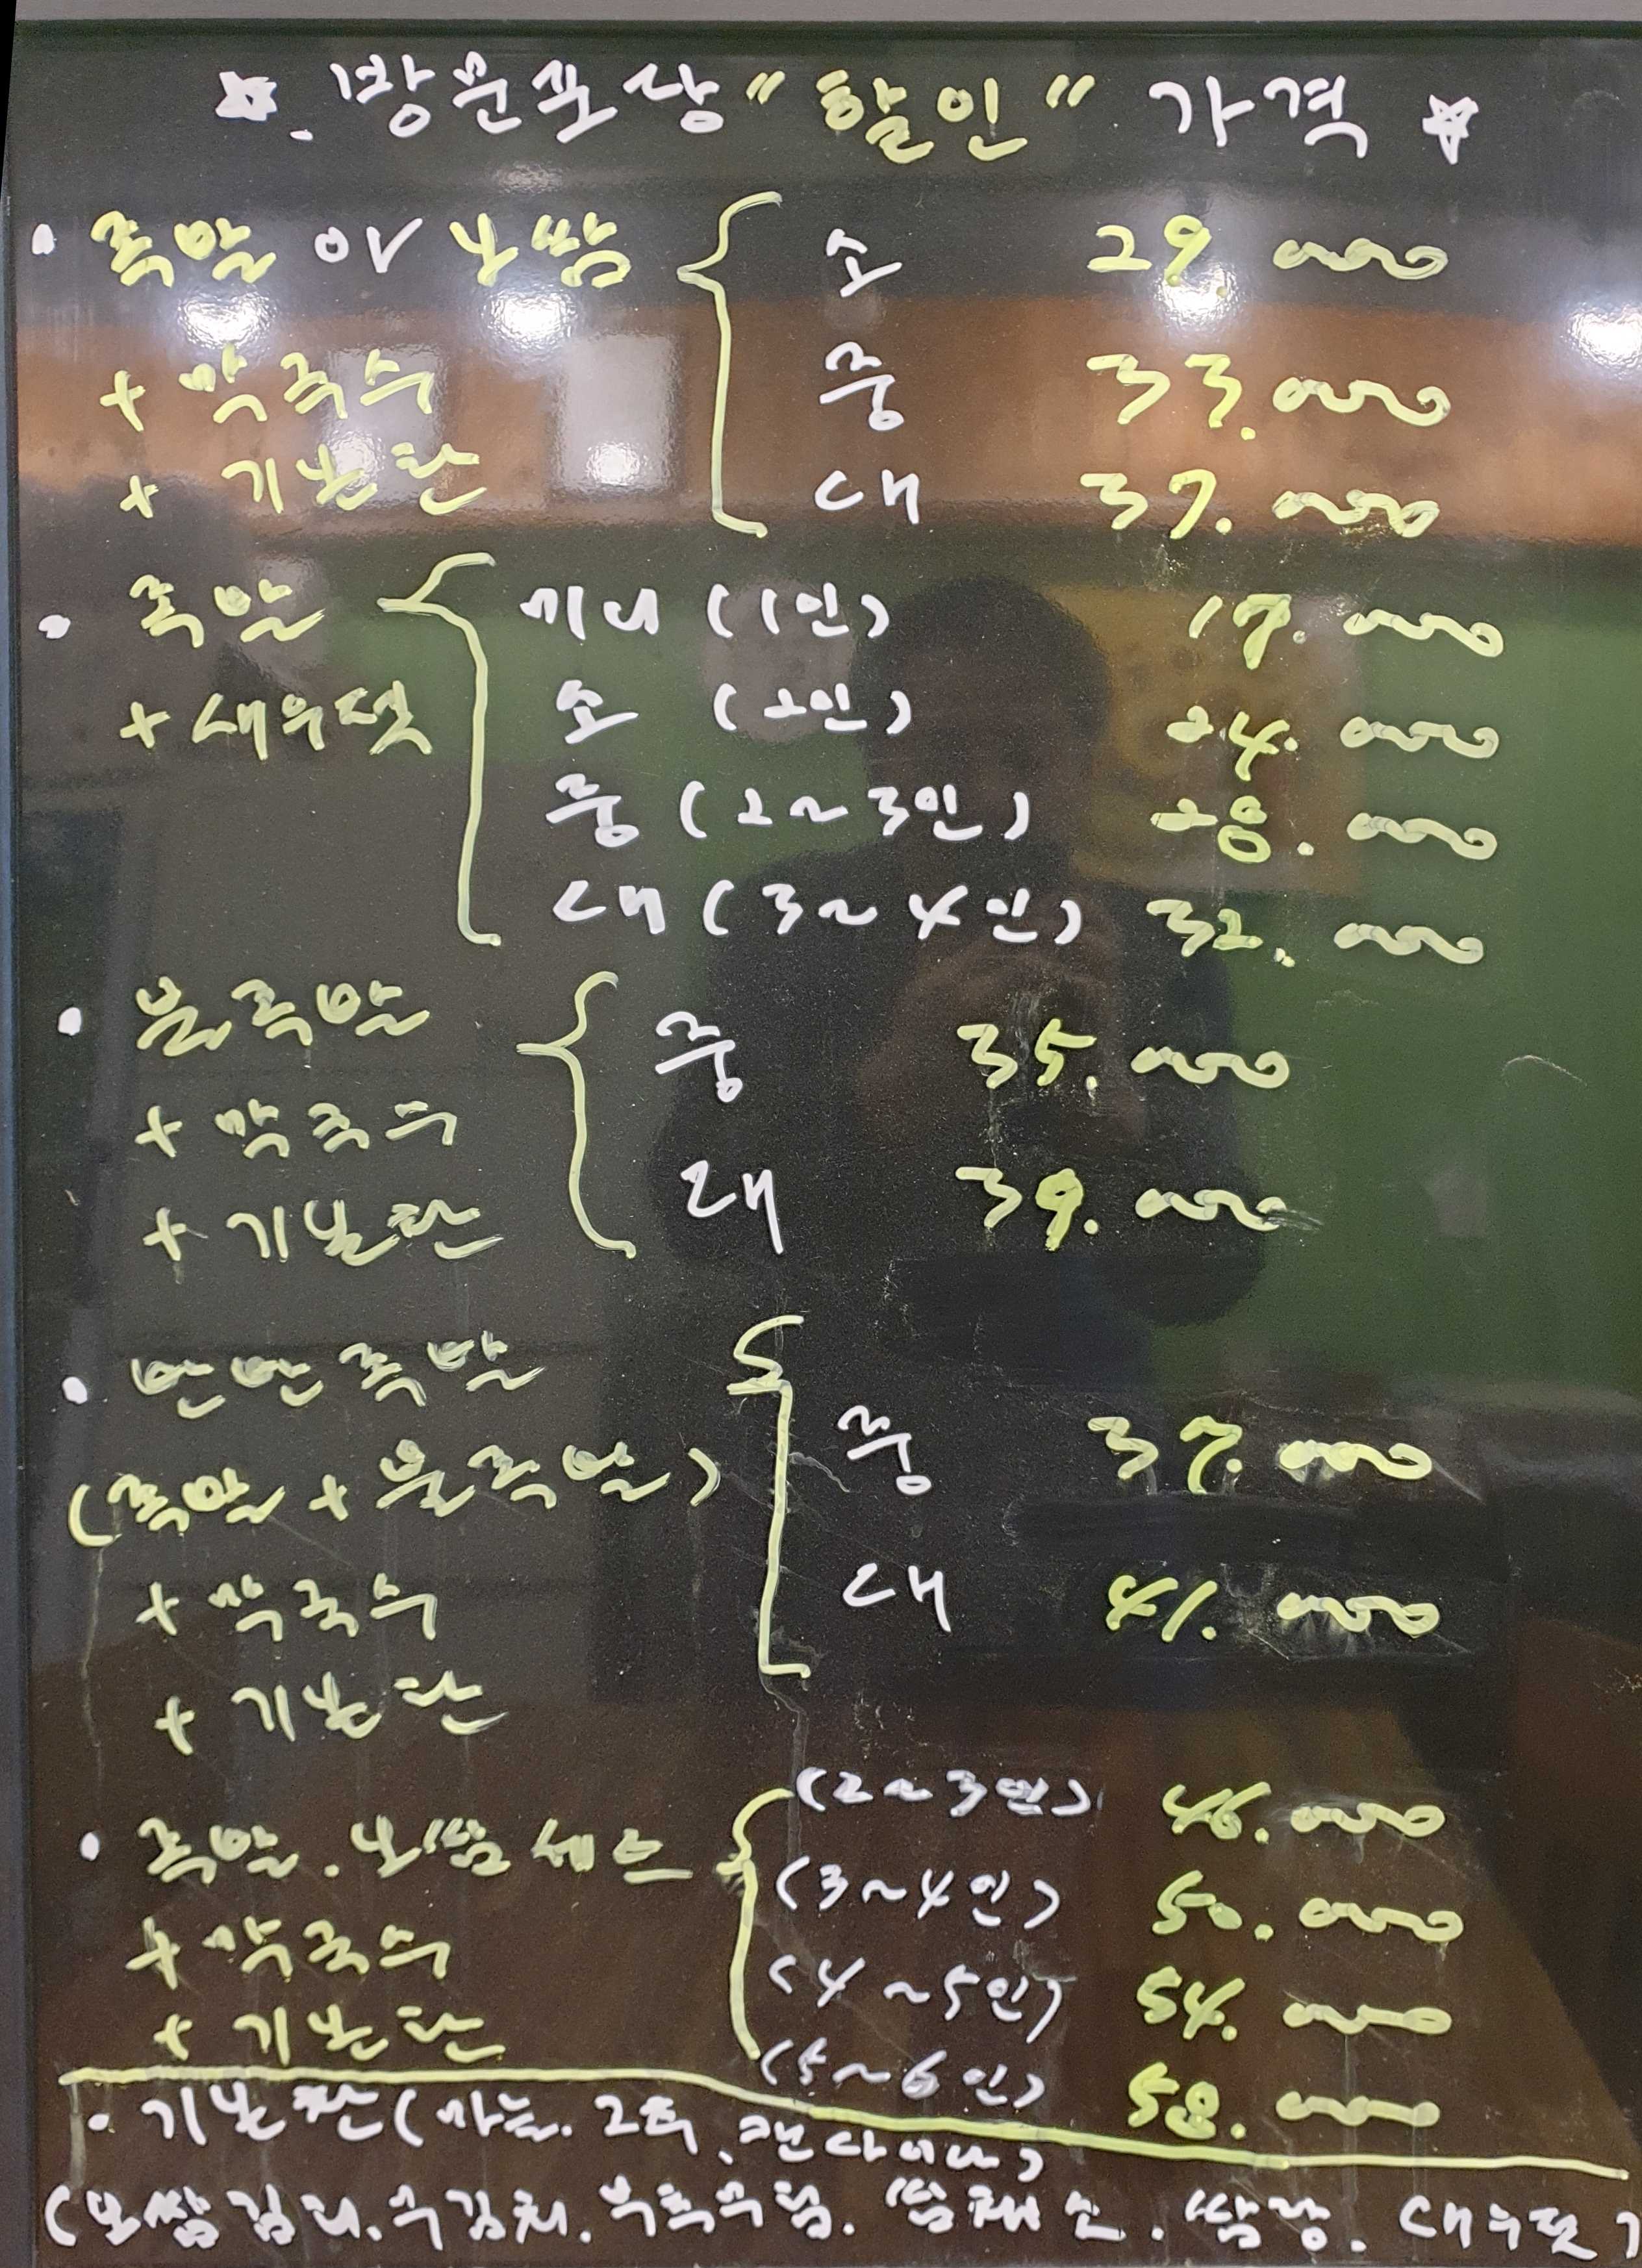 ☆. 방문포장 "할인" 가격 ☆
· 족발 or 보쌈 { 소 29.000
+ 막국수 중 33.000
+ 기본찬 대 37.000
· 족발 { 미니 (1인) 17.000
+ 새우젓 소 (2인) 24.000
중 (2~3인) 28.000
대 (3~4인) 32.000
· 불족발 { 중 35.000
+ 막국수
+ 기본찬 대 39.000
· 반반족발
(족발 + 불족발) { 중 37.000
+ 막국수 대 41.000
+ 기본찬
(2~3인) 46.000
· 족발. 보쌈세트 { (3~4인) 50.000
+ 막국수 (4~5인) 54.000
+ 기본찬 (5~6인) 58.000
· 기본찬 (마늘. 고추,
(보쌈김치. 무김치. 부추무침. 쌈채소. 쌈장. 새우젓)